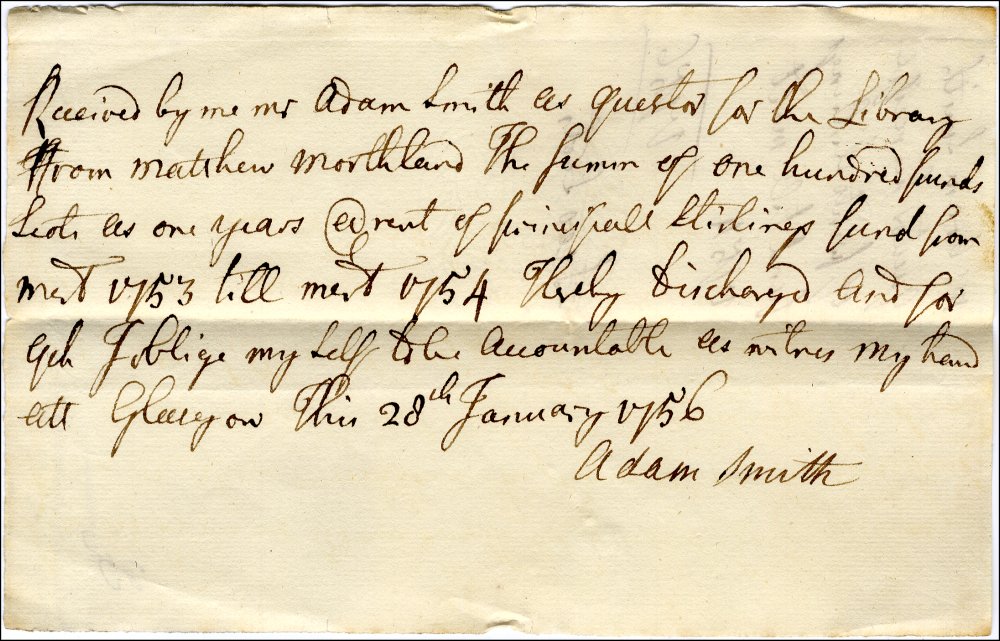 Received by me mr Adam Smith as questor for the Library
from Matthew Morthland The summ of one hundred punds
Scots as one years @rent of principall Stirlings fund from
mert 1753 till mert 1754 Hereby Discharged And for
qch I oblige my self to be Accountable as witnes my hand
att Glasgow This 28th January 1756
Adam Smith